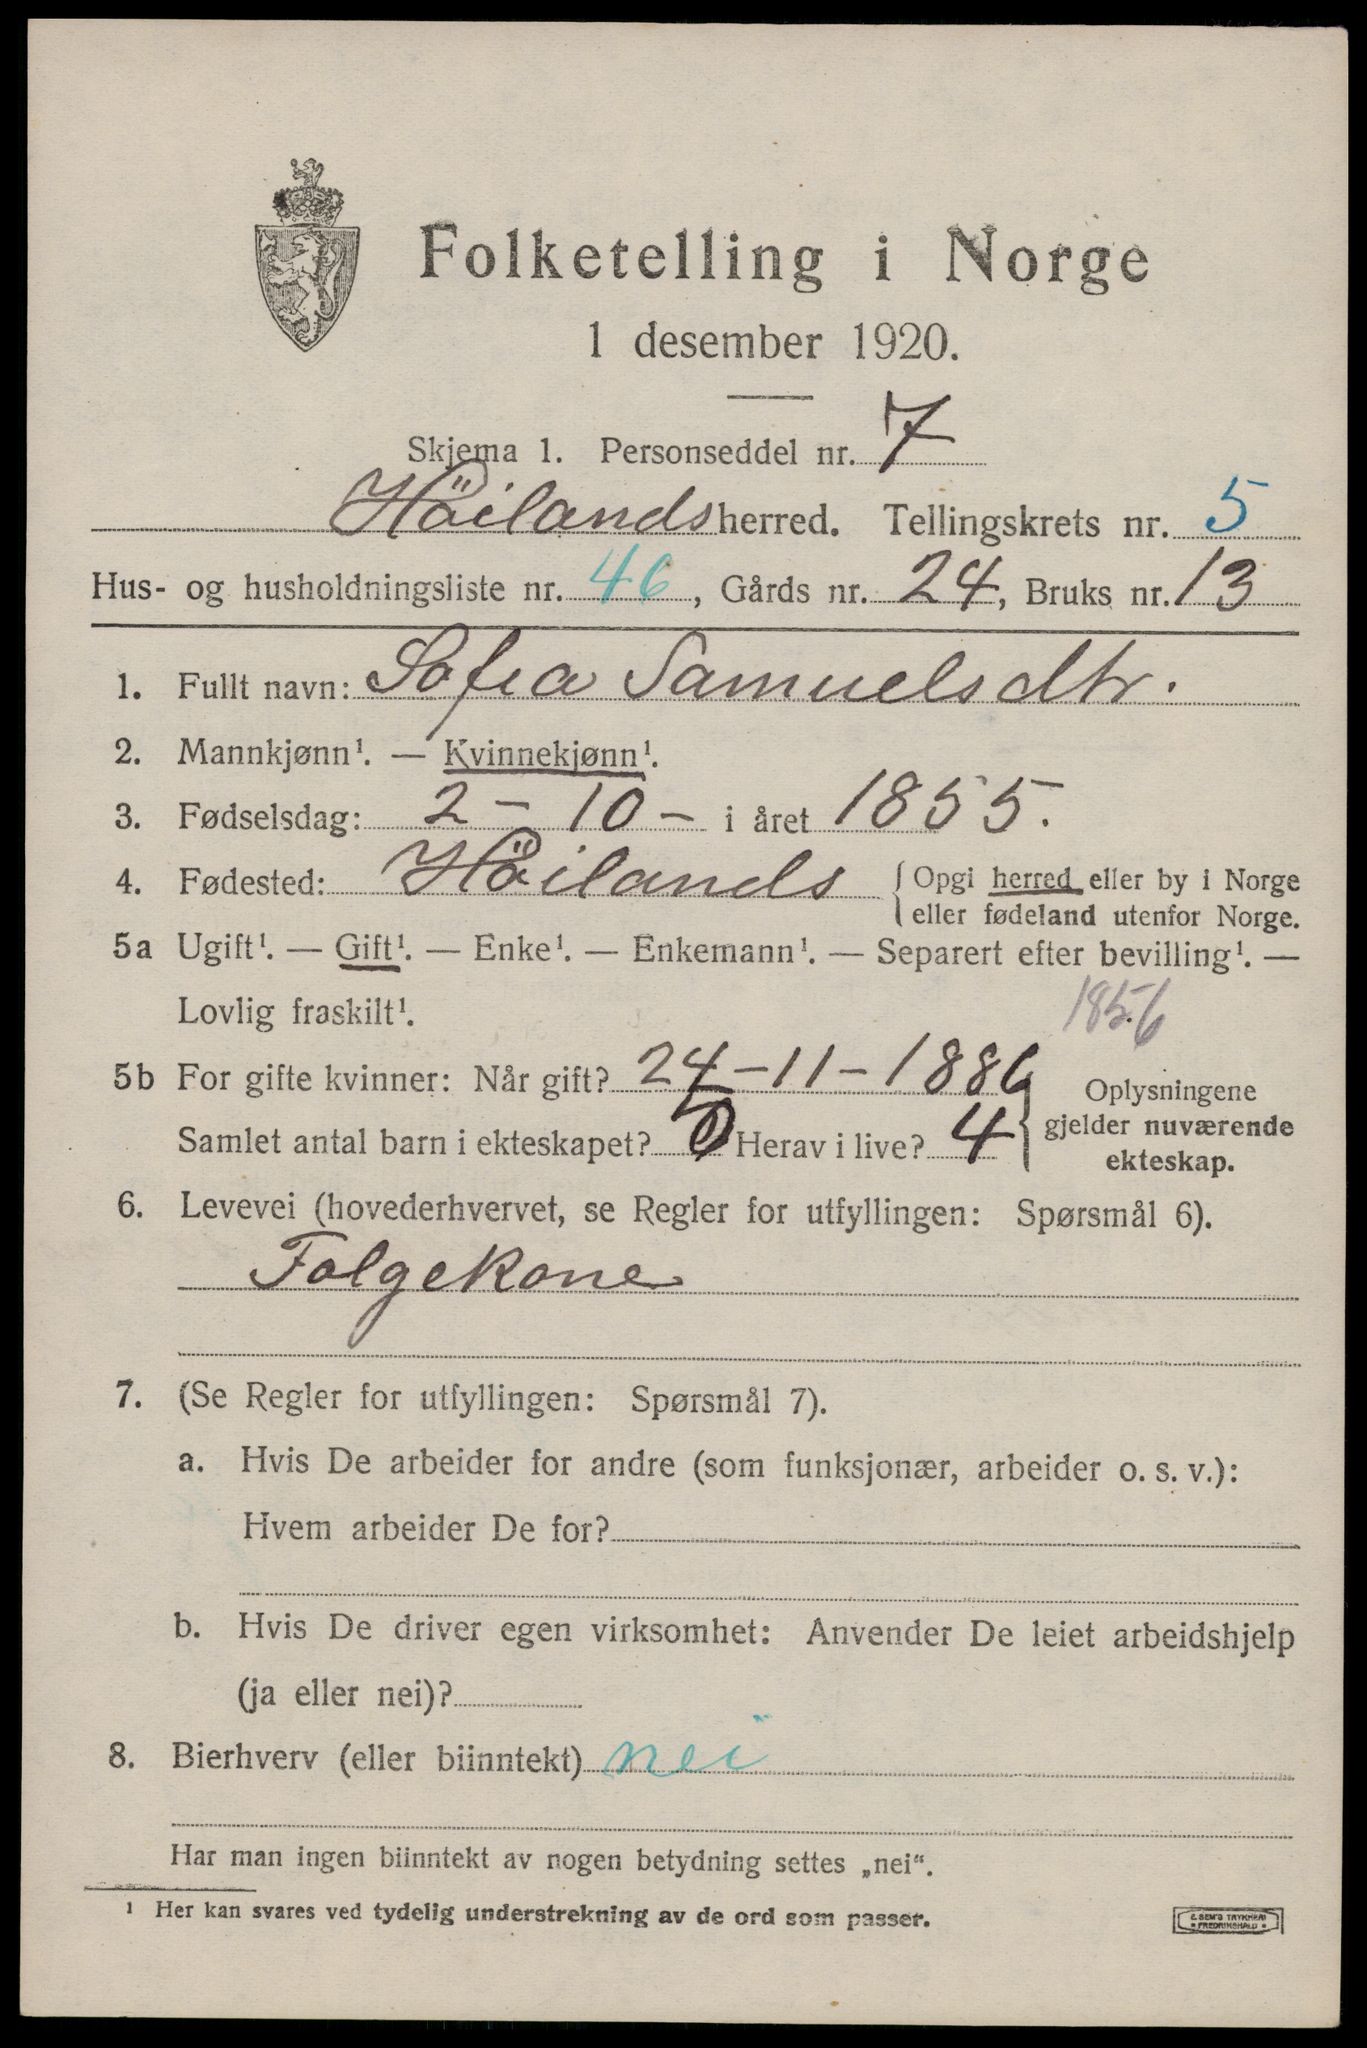 Folketelling i Norge
1 desember 1920.
Skjema 1. Personseddel nr. 7
Höilands herred. Tellingskrets nr. 5
Hus- og husholdningsliste nr. 46, Gårds nr. 24, Bruks nr. 13
1. Fullt navn: Sofia Samuelsdtr.
2. Mannkjønn¹. — Kvinnekjønn¹.
3. Fødselsdag: 2 - 10 - i året 1855.
4. Fødested: Höilands { Opgi herred eller by i Norge
eller fødeland utenfor Norge.
5a Ugift¹. — Gift¹. — Enke¹. — Enkemann¹. — Separert efter bevilling¹. —
Lovlig fraskilt¹.
1856
5b For gifte kvinner: Når gift? 24-11-1886
Samlet antal barn i ekteskapet? Herav i live? 4
Oplysningene
gjelder nuværende
ekteskap.
6. Levevei (hovederhvervet, se Regler for utfyllingen: Spørsmål 6).
Folgekone
7. (Se Regler for utfyllingen: Spørsmål 7).
a. Hvis De arbeider for andre (som funksjonær, arbeider o. s. v.):
Hvem arbeider De for?
b. Hvis De driver egen virksomhet: Anvender De leiet arbeidshjelp
(ja eller nei)?
8. Bierhverv (eller biinntekt) nei
Har man ingen biinntekt av nogen betydning settes „nei“.
¹ Her kan svares ved tydelig understrekning av de ord som passer.
E. SEM'S TRYKKERI
FREDRIKSHALD